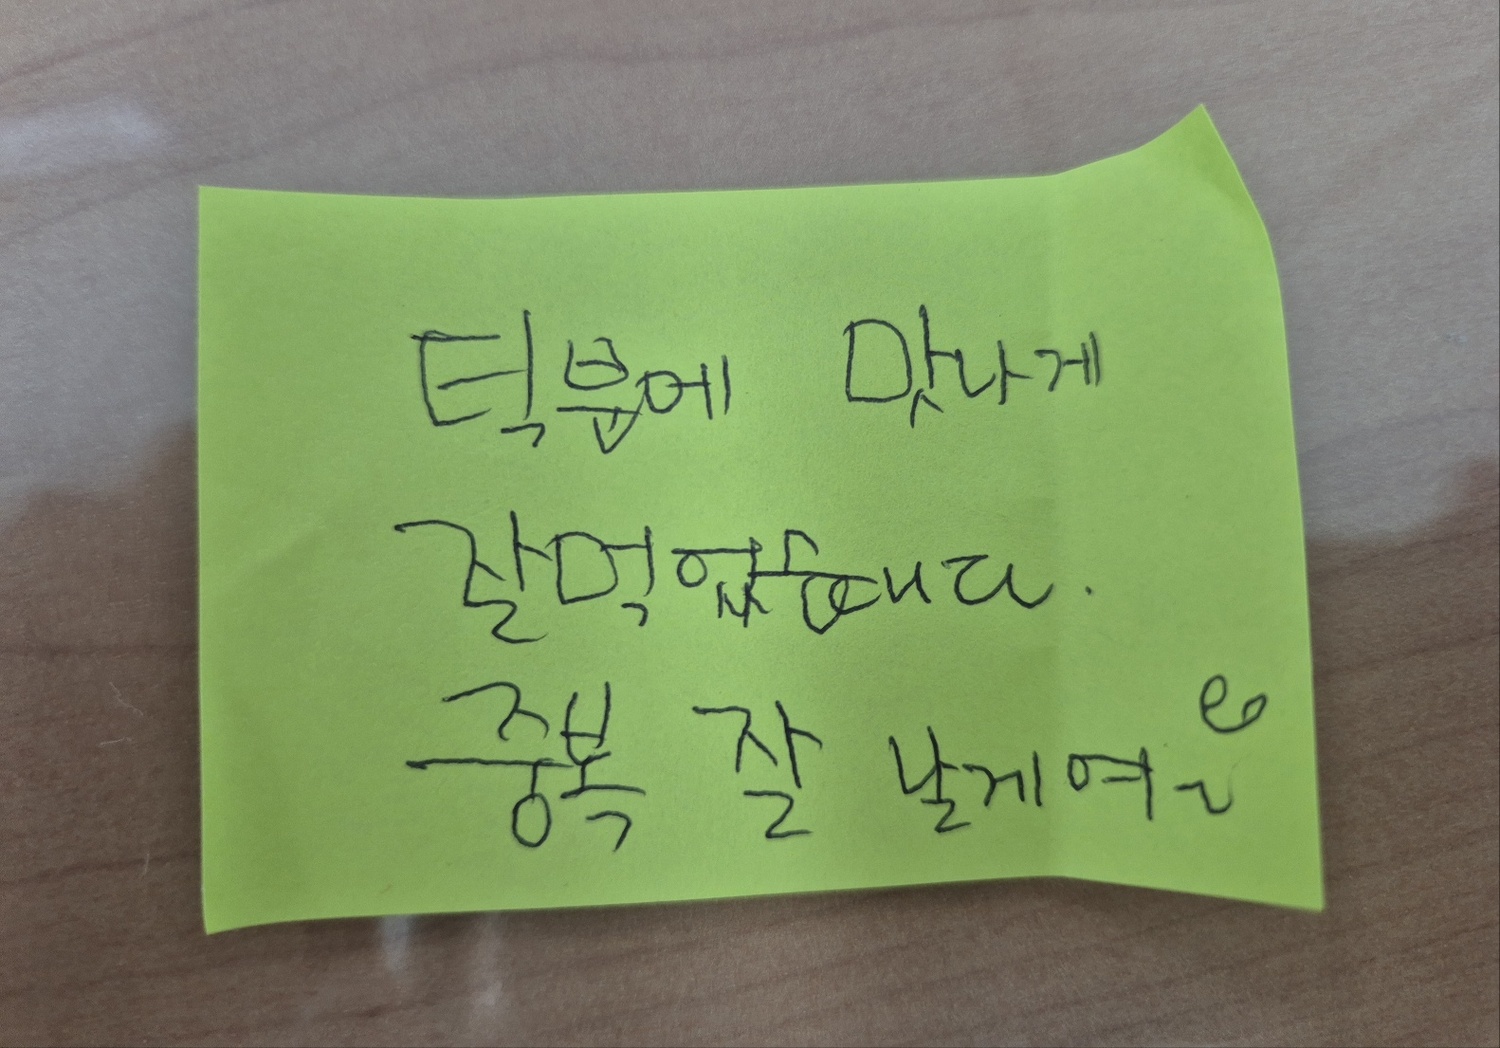 턱분에 맛나게
잘먹었습니다.
중복 잘 날게여~